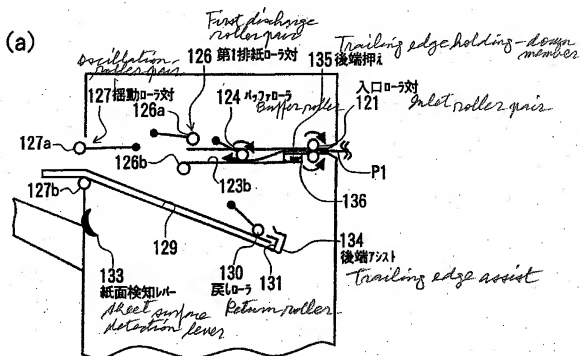 (a)
First discharge
roller pair
126 第1排紙ローラ対
135 後端押え
Trailing edge holding-down
member
oscillation
roller pair
127 揺動ローラ対
126a
124 バッファローラ
Buffer roller
入口ローラ対
121
Inlet roller pair
127a
126b
123b
P1
136
127b
129
134
後端アシスト
Trailing edge assist
133
紙面検知レバー
sheet surface
detection lever
130
戻しローラ
Return roller
131